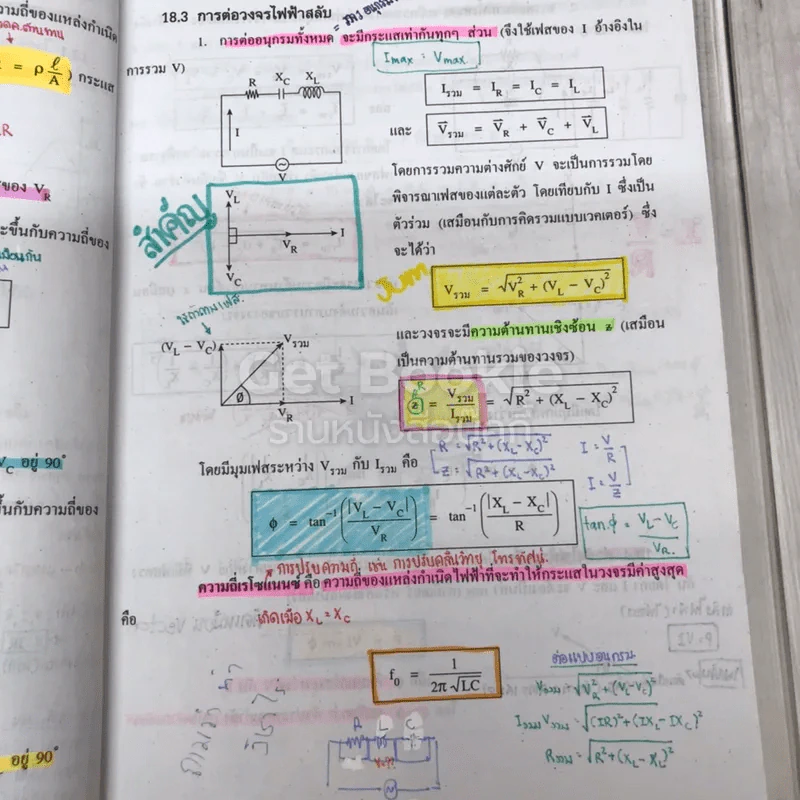 18.3 การต่อวงจรไฟฟ้าสลับ
1. การต่ออนุกรมทั้งหมด จะมีกระแสเท่ากันทุกๆ ส่วน (จึงใช้เฟสของ I อ้างอิงใน
การรวม V)
Imax : Vmax
R XC XL
I
V
Iรวม = IR = IC = IL
และ V̄รวม = V̄R + V̄C + V̄L
โดยการรวมความต่างศักย์ V จะเป็นการรวมโดย
พิจารณาเฟสของแต่ละตัว โดยเทียบกับ I ซึ่งเป็น
ตัวร่วม (เสมือนกับการคิดรวมแบบเวคเตอร์) ซึ่ง
จะได้ว่า
สำคัญ
VL
I
VR
VC
Vรวม = √VR² + (VL − VC)²
และวงจรจะมีความต้านทานเชิงซ้อน z (เสมือน
เป็นความต้านทานรวมของวงจร)
(VL − VC)
Vรวม
Ø
VR
I
Get Bookie
ร้านหนังสือมือดี
R
z = Vรวม/Iรวม = √R² + (XL − XC)²
R = √R²+(XL-XC)²
Z = √R²+(XL-XC)²
I = V/R
I = V/Z
โดยมีมุมเฟสระหว่าง Vรวม กับ Iรวม คือ
φ = tan⁻¹(|VL − VC|/VR) = tan⁻¹(|XL − XC|/R)
tanφ = VL-VC/VR
* การปรับความถี่ เช่น การปรับคลื่นวิทยุ โทรทัศน์
ความถี่เรโซแนนซ์ คือ ความถี่ของแหล่งกำเนิดไฟฟ้าที่จะทำให้กระแสในวงจรมีค่าสูงสุด
คือ
เกิดเมื่อ XL = XC
f0 = 1/2π√LC
ต่อแบบอนุกรม
Vรวม = √VR²+(VL-VC)²
Iรวม Vรวม = √(IR)²+(IXL-IXC)²
Rรวม = √R²+(XL-XL)²
R L C
วามถี่ของแหล่งกำเนิด
= ρ ℓ/A ) กระแส
ของ VR
ะขึ้นกับความถี่ของ
VC อยู่ 90°
ึ้นกับความถี่ของ
อยู่ 90°